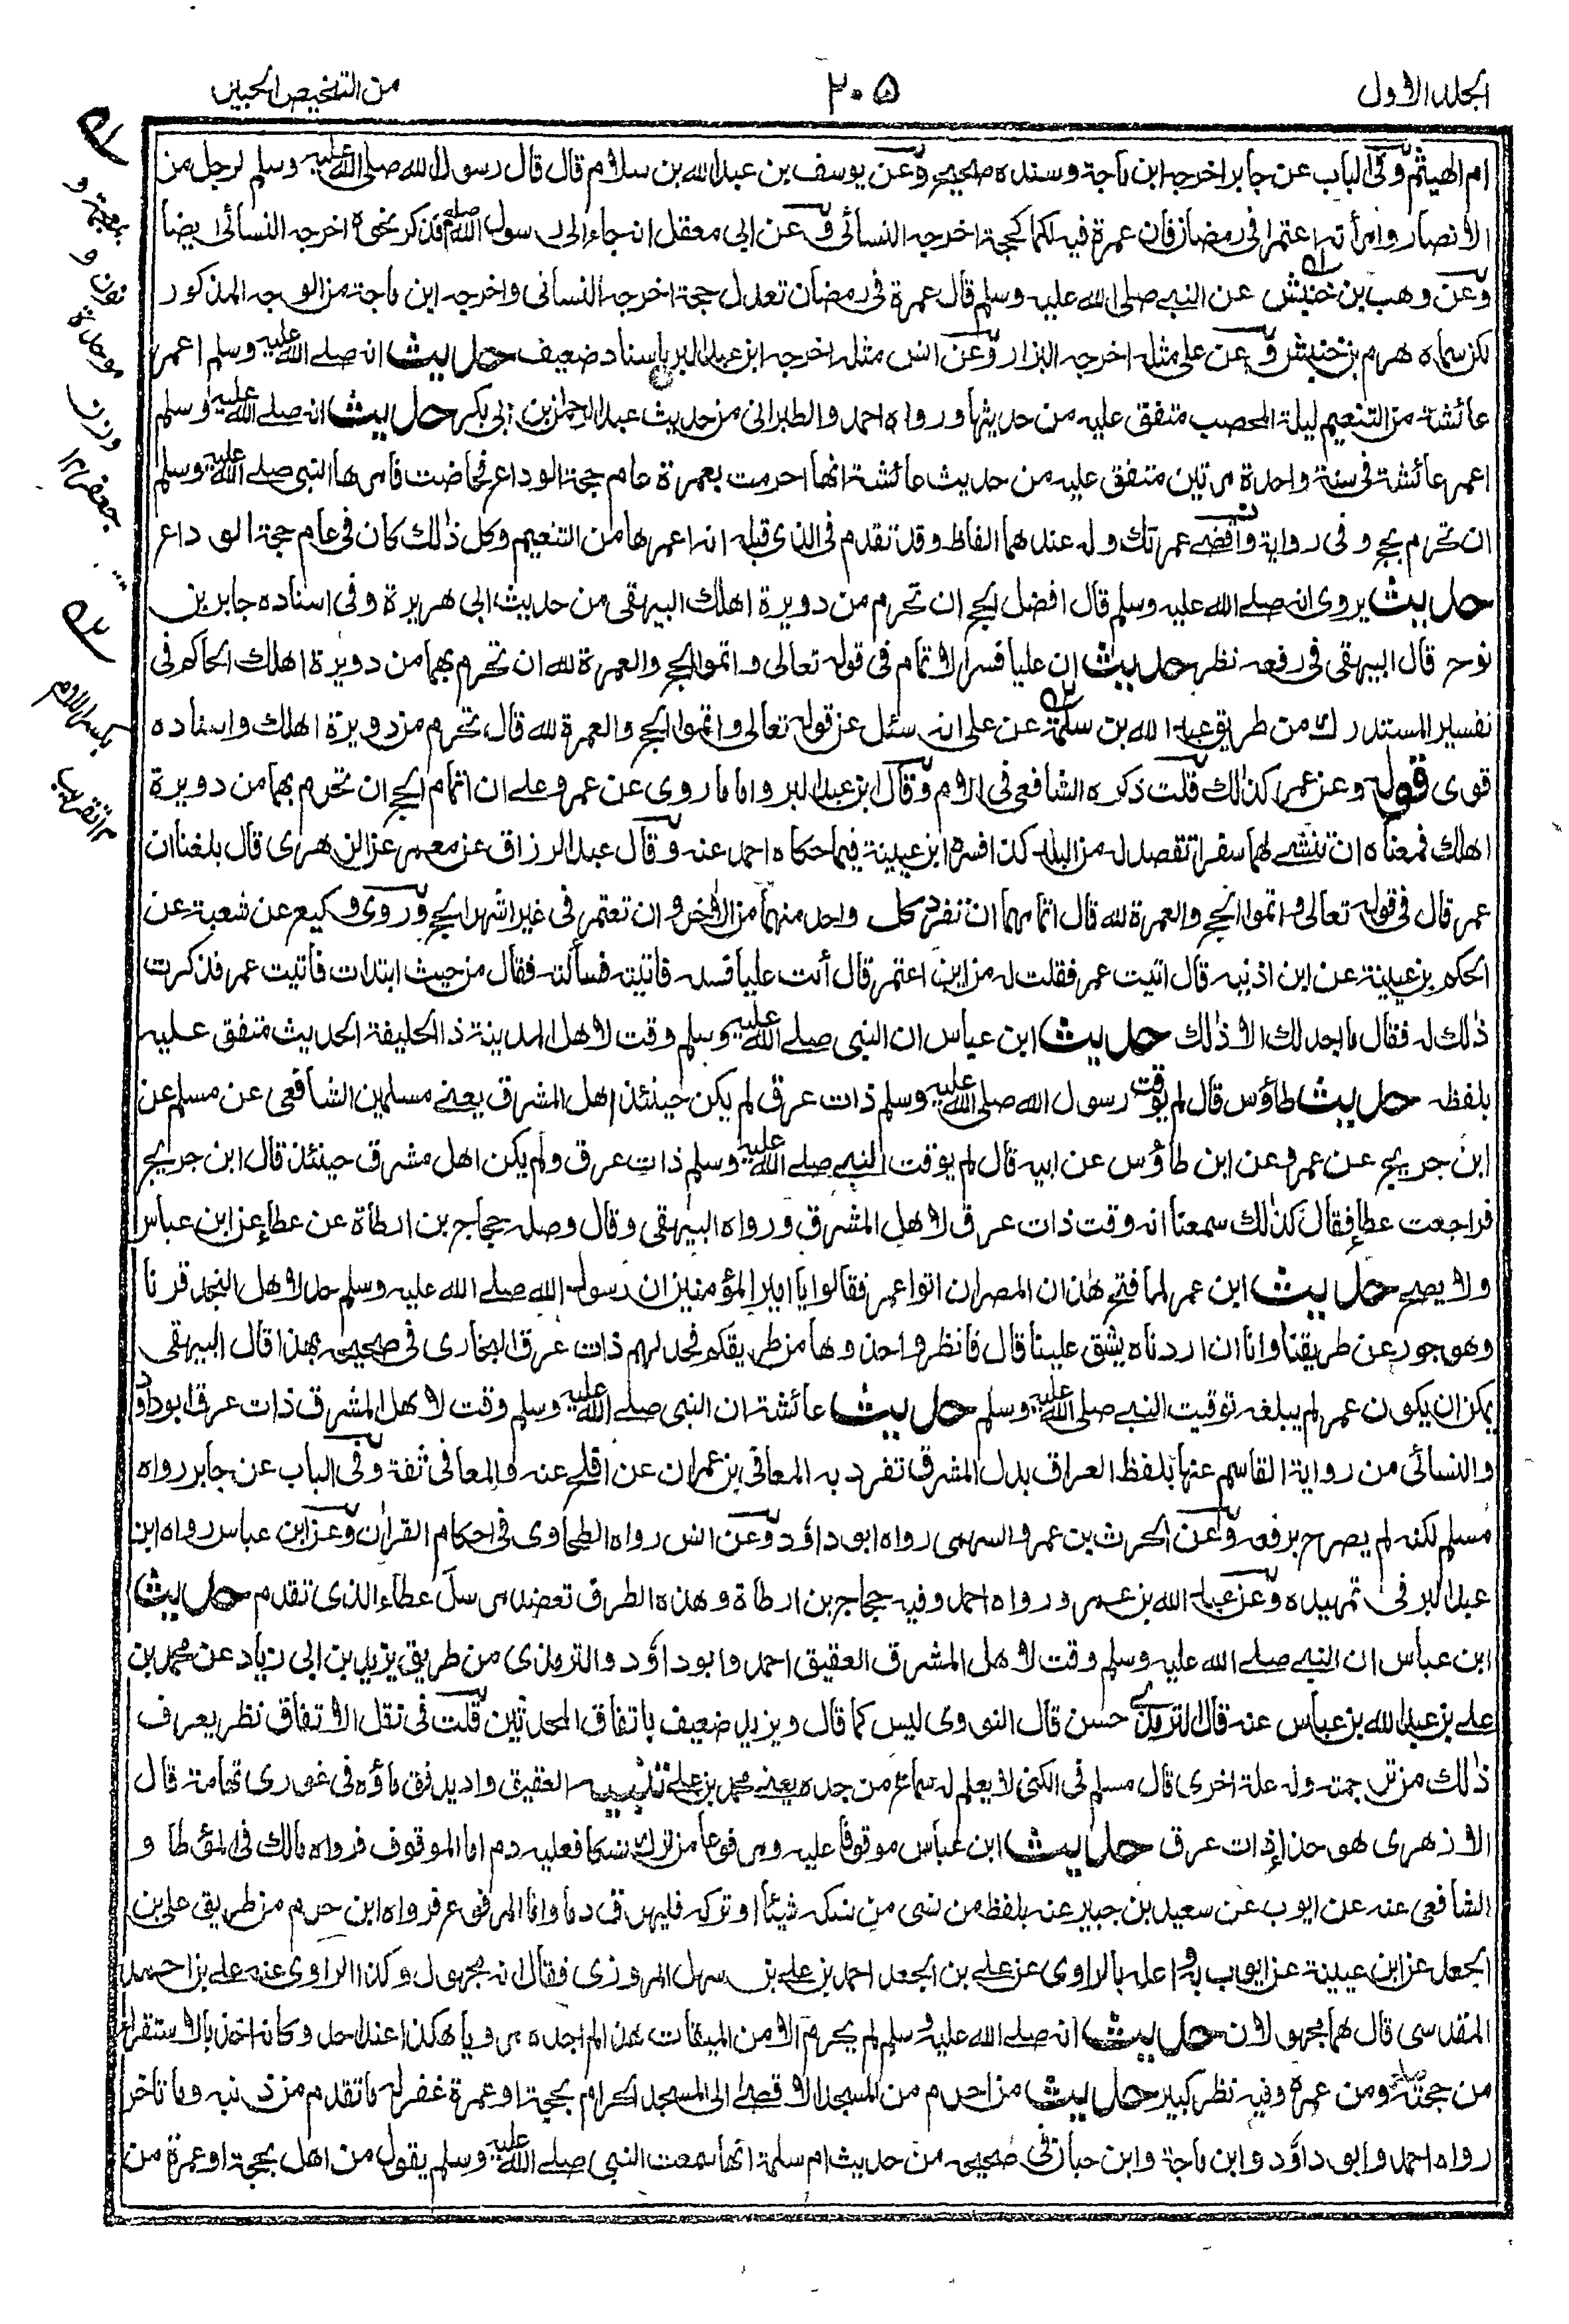 الجلد الاول
٢٠٥
من التلخيص الحبير
ام الهيثم وفى الباب عن جابر اخرجه ابن ماجة وسنده صحيح وعن يوسف بن عبد الله بن سلام قال قال رسول الله صلى الله عليه وسلم لرجل من
الانصار وامرأته اعتمرا فى رمضان فان عمرة فيه لكما كحجة اخرجه النسائى وعن ابى معقل انه جاء الى رسول الله صلعم فذكر نحوه اخرجه النسائى ايضا
وعن وهب بن خنبش عن النبى صلى الله عليه وسلم قال عمرة فى رمضان تعدل حجة اخرجه النسائى واخرجه ابن ماجة من الوجه المذكور
لكن سماه هرم بن خنبش وعن على مثله اخرجه البزار وعن انس مثله اخرجه ابن عبد البر باسناد ضعيف حديث انه صلى الله عليه وسلم اعمر
عائشة من التنعيم ليلة المحصب متفق عليه من حديثها ورواه احمد والطبرانى من حديث عبد الرحمن بن ابى بكر حديث انه صلى الله عليه وسلم
اعمر عائشة فى سنة واحدة مرتين متفق عليه من حديث عائشة انها احرمت بعمرة عام حجة الوداع فحاضت فامرها النبى صلى الله عليه وسلم
ان تحرم بحج وفى رواية وافضى عمرتك وله عندهما الفاظ وقد تقدم فى الذى قبله انه اعمرها من التنعيم وكل ذلك كان فى عام حجة الوداع
حديث يروى انه صلى الله عليه وسلم قال افضل الحج ان تحرم من دويرة اهلك البيهقى من حديث ابى هريرة وفى اسناده جابر بن
نوح قال البيهقى فى رفعه نظر حديث ان عليا فسر الاتمام فى قوله تعالى واتموا الحج والعمرة لله ان تحرم بهما من دويرة اهلك الحاكم فى
تفسير المستدرك من طريق عبد الله بن سلمة عن على انه سئل عن قوله تعالى واتموا الحج والعمرة لله قال تحرم من دويرة اهلك واسناده
قوى قوله وعن عمر كذلك قلت ذكره الشافعى فى الام وقال ابن عبد البر واما ما روى عن عمر وعلى ان اتمام الحج ان تحرم بهما من دويرة
اهلك فمعناه ان تنشئ لهما سفرا تقصد له من البلد كذا فسره ابن عيينة فيما حكاه احمد عنه وقال عبد الرزاق عن معمر عن الزهرى قال بلغنا ان
عمر قال فى قوله تعالى واتموا الحج والعمرة لله قال اتمامهما ان تفرد كل واحد منهما من الاخر وان تعتمر فى غير اشهر الحج وروى وكيع عن شعبة عن
الحكم بن عيينة عن ابن اذينه قال اتيت عمر فقلت له من اين اعتمر قال أئت عليا فسله فاتيته فسألته فقال من حيث ابتدات فأتيت عمر فذكرت
ذلك له فقال ما اجد لك الا ذلك حديث ابن عباس ان النبى صلى الله عليه وسلم وقت لاهل المدينة ذا الحليفة الحديث متفق عليه
بلفظه حديث طاؤس قال لم يوقت رسول الله صلى الله عليه وسلم ذات عرق لم يكن حينئذ اهل المشرق يعنى مسلمين الشافعى عن مسلم عن
ابن جريج عن عمرو عن ابن طاؤس عن ابيه قال لم يوقت النبى صلى الله عليه وسلم ذات عرق ولم يكن اهل مشرق حينئذ قال ابن جريج
فراجعت عطاء فقال كذلك سمعنا انه وقت ذات عرق لاهل المشرق ورواه البيهقى وقال وصله حجاج بن ارطاة عن عطاء عن ابن عباس
ولا يصح حديث ابن عمر لما فتح هذان المصران اتوا عمر فقالوا يا امير المؤمنين ان رسول الله صلى الله عليه وسلم حد لاهل النجد قرنا
وهو جور عن طريقنا وانا ان اردناه يشق علينا قال فانظروا حذوها من طريقكم فحد لهم ذات عرق البخارى فى صحيحه بهذا قال البيهقى
يمكن ان يكون عمر لم يبلغه توقيت النبى صلى الله عليه وسلم حديث عائشة ان النبى صلى الله عليه وسلم وقت لاهل المشرق ذات عرق ابو داؤد
والنسائى من رواية القاسم عنها بلفظ العراق بدل المشرق تفرد به المعافى بن عمران عن افلح عنه والمعافى ثقة وفى الباب عن جابر رواه
مسلم لكنه لم يصرح برفعه وعن الحرث بن عمرو السهمى رواه ابو داؤد وعن انس رواه الطحاوى فى احكام القران وعن ابن عباس رواه ابن
عبد البر فى تمهيده وعن عبد الله بن عمرو رواه احمد وفيه حجاج بن ارطاة وهذه الطرق تعضد مرسل عطاء الذى تقدم حديث
ابن عباس ان النبى صلى الله عليه وسلم وقت لاهل المشرق العقيق احمد وابو داؤد والترمذى من طريق يزيد بن ابى زياد عن محمد بن
على بن عبد الله بن عباس عنه قال الترمذى حسن قال النووى ليس كما قال ويزيد ضعيف باتفاق المحدثين قلت فى نقل الاتفاق نظر يعرف
ذلك من ترجمته وله علة اخرى قال مسلم فى الكنى لا يعلم له سماع من جده يعنى محمد بن على تنبيه العقيق واد يدفق ماؤه فى غورى تهامة قال
الازهرى هو حذاء ذات عرق حديث ابن عباس موقوفا عليه ومرفوعا من ترك نسكا فعليه دم اما الموقوف فرواه مالك فى المؤطا و
الشافعى عنه عن ايوب عن سعيد بن جبير عنه بلفظ من نسى من نسكه شيئا او تركه فليهرق دما واما المرفوع فرواه ابن حزم من طريق على بن
الجعد عن ابن عيينة عن ايوب به واعله بالراوى عن على بن الجعد احمد بن على بن سهل المروزى فقال انه مجهول وكذا الراوى عنه على بن احمد
المقدسى قال هما مجهولان حديث انه صلى الله عليه وسلم لم يحرم الا من الميقات هذا لم اجده مرويا هكذا عند احد وكانه اخذ بالاستقراء
من حجته ومن عمره وفيه نظر كبير حديث من احرم من المسجد الاقصى الى المسجد الحرام بحجة او عمرة غفر له ما تقدم من ذنبه وما تاخر
رواه احمد وابو داؤد وابن ماجة وابن حبان فى صحيحه من حديث ام سلمة انها سمعت النبى صلى الله عليه وسلم يقول من اهل بحجة او عمرة من
بمعجمة و
نون و
موحدة
وزن
جعفر ١٢
بكسر اللام
١٢ تقريب